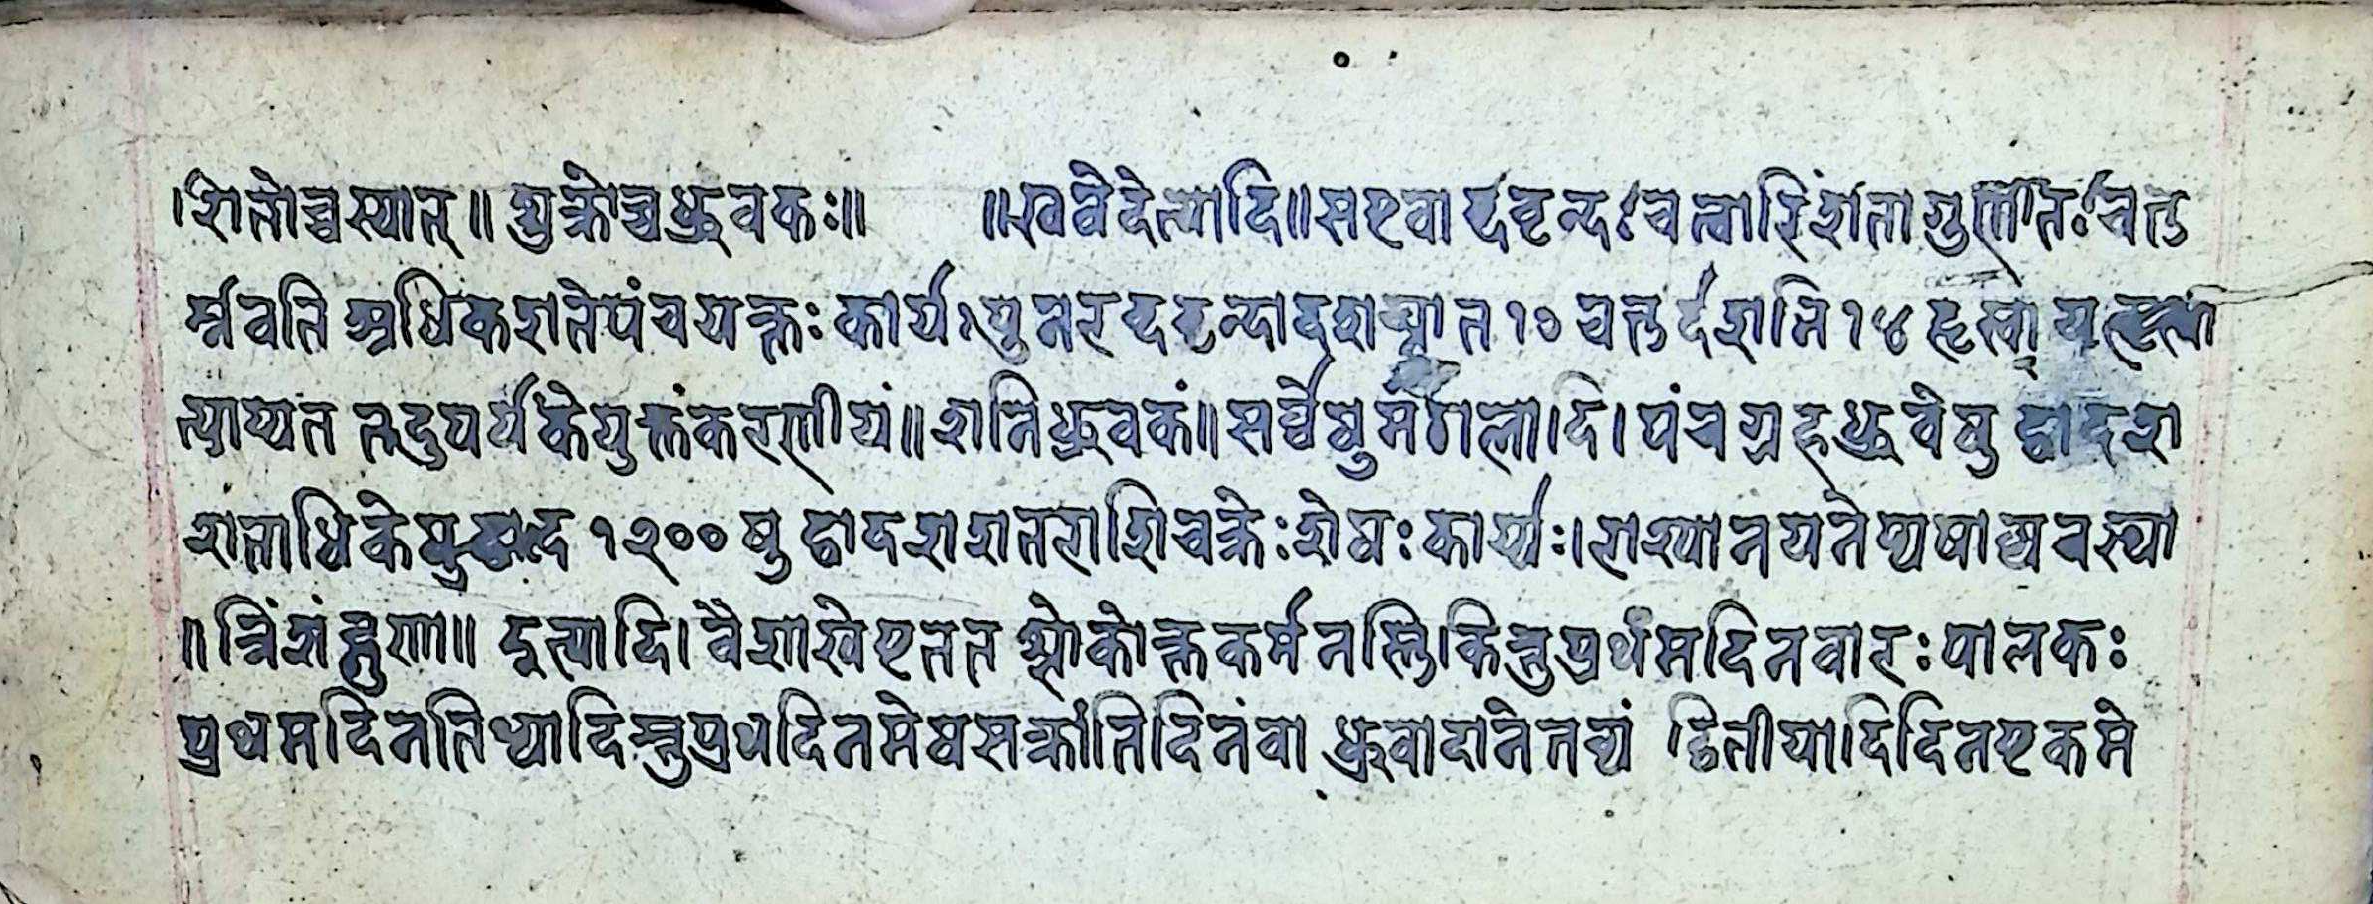 ।शितोच्चस्यात्॥ शुक्रोच्चध्रुवकः॥ ॥खवेदेत्यादि॥सएवाब्दवृन्दः चत्वारिंशता गुणितः चतु
र्न्नवति अधिकशतेपंचयक्तः कार्यः पुनरब्दवृन्दादशघ्नात १० चतुर्दशनि १४ हृत्वा यत्हृत्वा
त्याप्यत तदुपर्यकेयुक्तंकरणीयं॥शनिध्रुवकं॥सर्व्वेषुमंगलादि।पंचग्रहध्रुवेषु द्वादश
शताधिकेषु १२०० षु द्वादशशतराशिचक्रेःशेषः कार्य्यः।राश्यानयनेप्य
॥त्रिंशंद्गुणा॥ दूत्यादि।वैशाखेएतत श्लोकोक्तकर्म नस्ति।किन्तुप्रथंमदिनवारःपालकः
प्रथमदिनतिथ्यादिस्तुप्रथदिनमेषसक्रांतिदिनंवा ध्रुवादानेतव्यं द्वितीयादिदिनएकमे